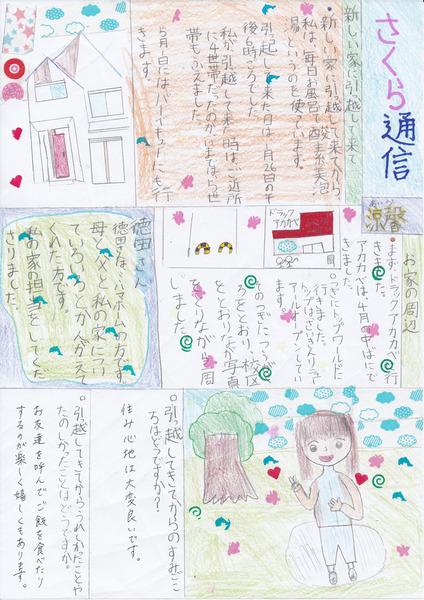 さくら通信
新しい家に引越して来て
・新しい家に引越して来てから、
私は、毎日お風呂で酸素美泡
湯というのを使っています。
引起しして来た月は1月26日の午
後6時ごろでした。
私が引越して来た時はご近所
に4世帯だったのが、いまではら世
帯もふえました。
5月1日にはバーベキューにも行
きます。
涼馨
お家の周辺
・まず、ドラックアカカベへ行
きました。
アカカベは4月の半ばにで
きました。
つぎにトップワールドに
行きました。
ます。
そのつぎに
をとりながら周
しました。
ドラック
アカカベ
徳田さん
徳田さんはヤマホームの方です。
母と父と私の家につい
ているいろとかんがえて
くれた方です。
私の家の担当をしてくだ
さりました。
○引越してきてからのすみごこ
ちはどうですか?
住み心地は大変良いです。
○引越してきてからうれしかったことや
たのしかったことはどうですか。
お友達を呼んでご飯を食べたり
するのが楽しく嬉しくもあります。